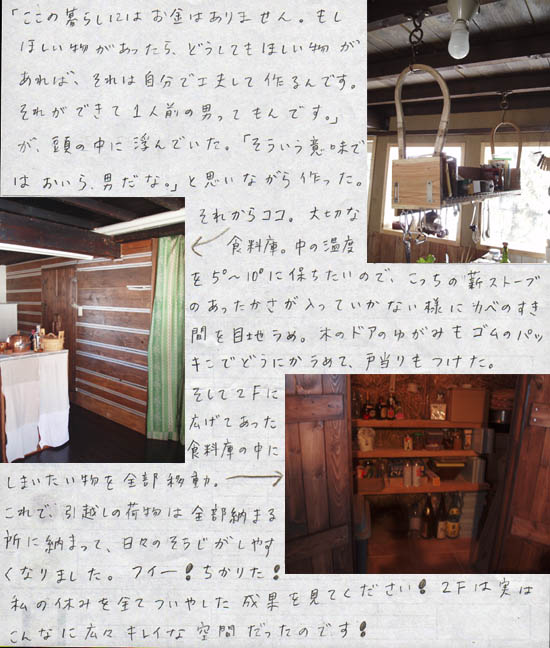 「ここの暮らしにはお金はありません。もし
ほしい物があったら、どうしてもほしい物が
あれば、それは自分で工夫して作るんです。
それができて1人前の男ってもんです。」
が、頭の中に浮んでいた。「そういう意味で
はおいら、男だな。」と思いながら作った。
それからココ。大切な
食料庫。中の温度
を5°〜10°に保ちたいので、こっちの薪ストーブ
のあったかさが入っていかない様にカベのすき
間を目地うめ。木のドアのゆがみもゴムのパッ
キンでどうにかうめて、戸当りもつけた。
そして2Fに
広げてあった
食料庫の中に
しまいたい物を全部移動。
これで、引越しの荷物は全部納まる
所に納まって、日々のそうじがしやす
くなりました。フイー!ちかりた!
私の休みを全てついやした成果を見てください!2Fは実は
こんなに広々キレイな空間だったのです!